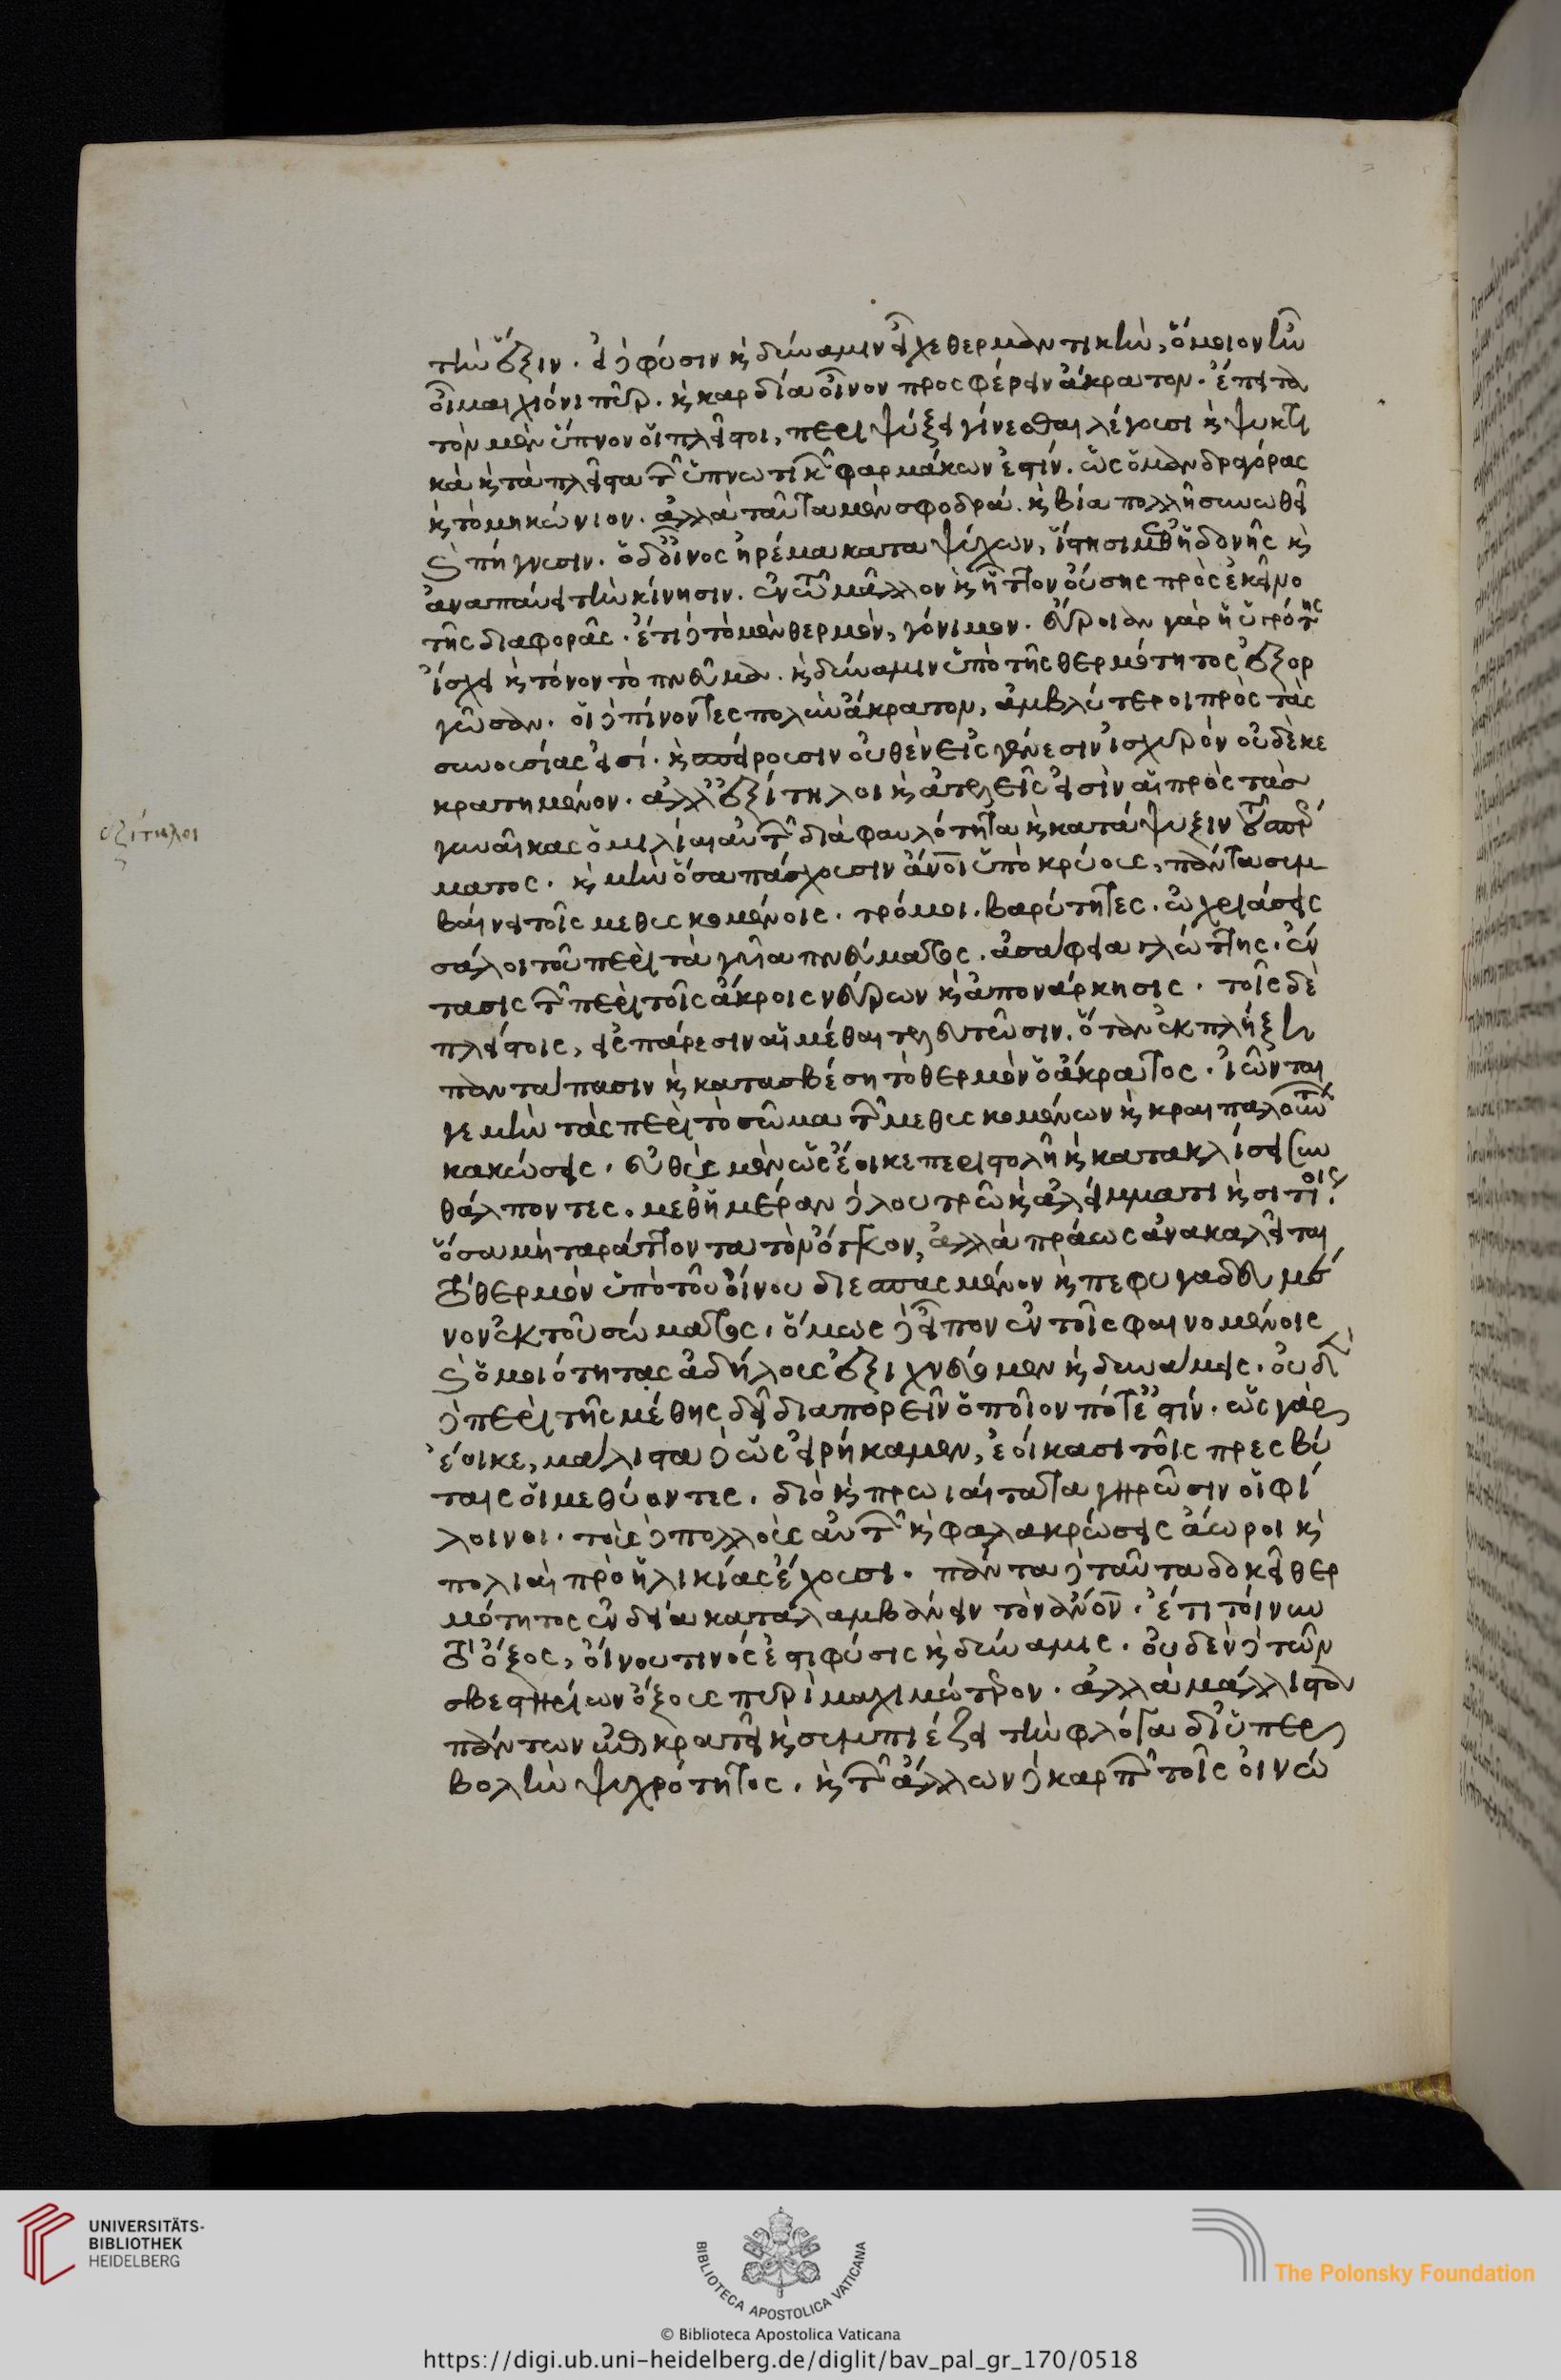 τὴν ἕξιν. εἰ δὲ φύσιν καὶ δύναμιν εἶχε θερμαντικὴν, ὅμοιον ἦν
οἶμαι χιόνι πῦρ. καὶ καρδία οἶνον προσφέρειν ἄκρατον. ἔπειτα
τὸν μὲν ὕπνον οἱ πλεῖστοι, περιψύξει γίνεσθαι λέγουσι καὶ ψυκτι
κὰ καὶ τὰ πλεῖστα τῶν ὑπνωτικῶν φαρμάκων ἐστίν. ὡς ὁ μανδραγόρας
καὶ τὸ μηκώνιον. ἀλλὰ ταῦτα μὲν σφοδρά. καὶ βία πολλῆ συνωθεῖ
καὶ πήγνυσιν. ὁ δ' οἶνος ἠρέμα καταψύχων, ἵστησι μεθ' ἡδονῆς καὶ
ἀναπαύει τὴν κίνησιν. ἐν τῶ μᾶλλον καὶ ἧττον οὔσης πρὸς ἐκεῖνο
τῆς διαφορᾶς. ἔτι δὲ τὸ μὲν θερμὸν, γόνιμον. εὔροιαν γὰρ ἡ ὑγρότης
ἴσχει καὶ τόνον τὸ πνεῦμα. καὶ δύναμιν ὑπὸ τῆς θερμότητος ἐξορ
γῶσαν. οἱ δὲ πίνοντες πολὺν ἄκρατον, ἀμβλύτεροι πρὸς τὰς
συνουσίας εἰσί. καὶ σπείρουσιν οὐθὲν εἰς γένεσιν ἰσχυρὸν οὐδὲ κε
κρατημένον. ἀλλ' ἐξίτηλοι καὶ ἀτελεῖς εἰσὶν αἱ πρὸς τὰς
ἐξίτηλοι
γυναῖκας ὁμιλίαι αὐτῶν διὰ φαυλότητα καὶ κατάψυξιν τοῦ σπέρ
ματος. καὶ μὴν ὅσα πάσχουσιν ἄνοι ὑπὸ κρύους, πάντα συμ
βαίνει τοῖς μεθυσκομένοις. τρόμοι. βαρύτητες. ὠχριάσεις
σάλοι τοῦ περὶ τὰ γυῖα πνεύματος. ἀσάφεια γλώττης. ἔν
τασις τῶν περὶ τοῖς ἄκροις νεύρων καὶ ἀπονάρκησις. τοῖς δὲ
πλείστοις, εἰς πάρεσιν αἱ μέθαι τελευτῶσιν. ὅταν ἐκπλήξη
πανταπασιν καὶ κατασβέση τὸ θερμὸν ὁ ἄκρατος. ἰῶνται
γε μὴν τὰς περὶ τὸ σῶμα τῶν μεθυσκομένων καὶ κραιπαλούντων
κακώσεις. εὐθὺς μὲν ὡς ἔοικε περιστολῆ καὶ κατακλίσει συν
θάλποντες. μεθ' ἡμέραν δὲ λουτρῶ καὶ ἀλείμματι καὶ σιτίοις
ὅσα μὴ ταράττοντα τὸν ὄγκον, ἀλλὰ πράως ἀνακαλεῖται
τὸ θερμὸν ὑπὸ τοῦ οἴνου διεσπασμένον καὶ πεφυγαδευμέ
νον ἐκ τοῦ σώματος. ὅμως δὲ εἶπον ἐν τοῖς φαινομένοις
καὶ ὁμοιότητας ἀδήλους ἐξιχνεύομεν καὶ δυνάμεις. οὐδὲν
δὲ περὶ τῆς μέθης δεῖ διαπορεῖν ὁποῖον πότε ἐστίν. ὡς γὰρ
ἔοικε, μάλιστα δὲ ὡς εἰρήκαμεν, ἐοίκασι τοῖς πρεσβύ
ταις οἱ μεθύοντες. διὸ καὶ πρωιαίτατα γηρῶσιν οἱ φί
λοινοι. τοὺς δὲ πολλοὺς αὐτῶν καὶ φαλακρώσεις ἄωροι καὶ
πολιαὶ πρὸ ἡλικίας ἔχουσι. πάντα δὲ ταῦτα δοκεῖ θερ
μότητος ἐνδεία καταλαμβάνειν τὸν ἄνον. ἔτι τοίνυν
τὸ ὄξος, οἴνου τινός ἐστι φύσις καὶ δύναμις. οὐδὲν δὲ τῶν
σβεστηρίων ὄξους πυρὶ μαχιμώτερον. ἀλλὰ μάλλιστα
πάντων ἐπικρατεῖ καὶ συμπιέζει τὴν φλόγα δι' ὑπερ
βολὴν ψυχρότητος. καὶ τῶν ἄλλων δὲ καρπῶν τοῖς οἰνώ
UNIVERSITÄTS-
BIBLIOTHEK
HEIDELBERG
BIBLIOTECA APOSTOLICA VATICANA
The Polonsky Foundation
© Biblioteca Apostolica Vaticana
https://digi.ub.uni-heidelberg.de/diglit/bav_pal_gr_170/0518